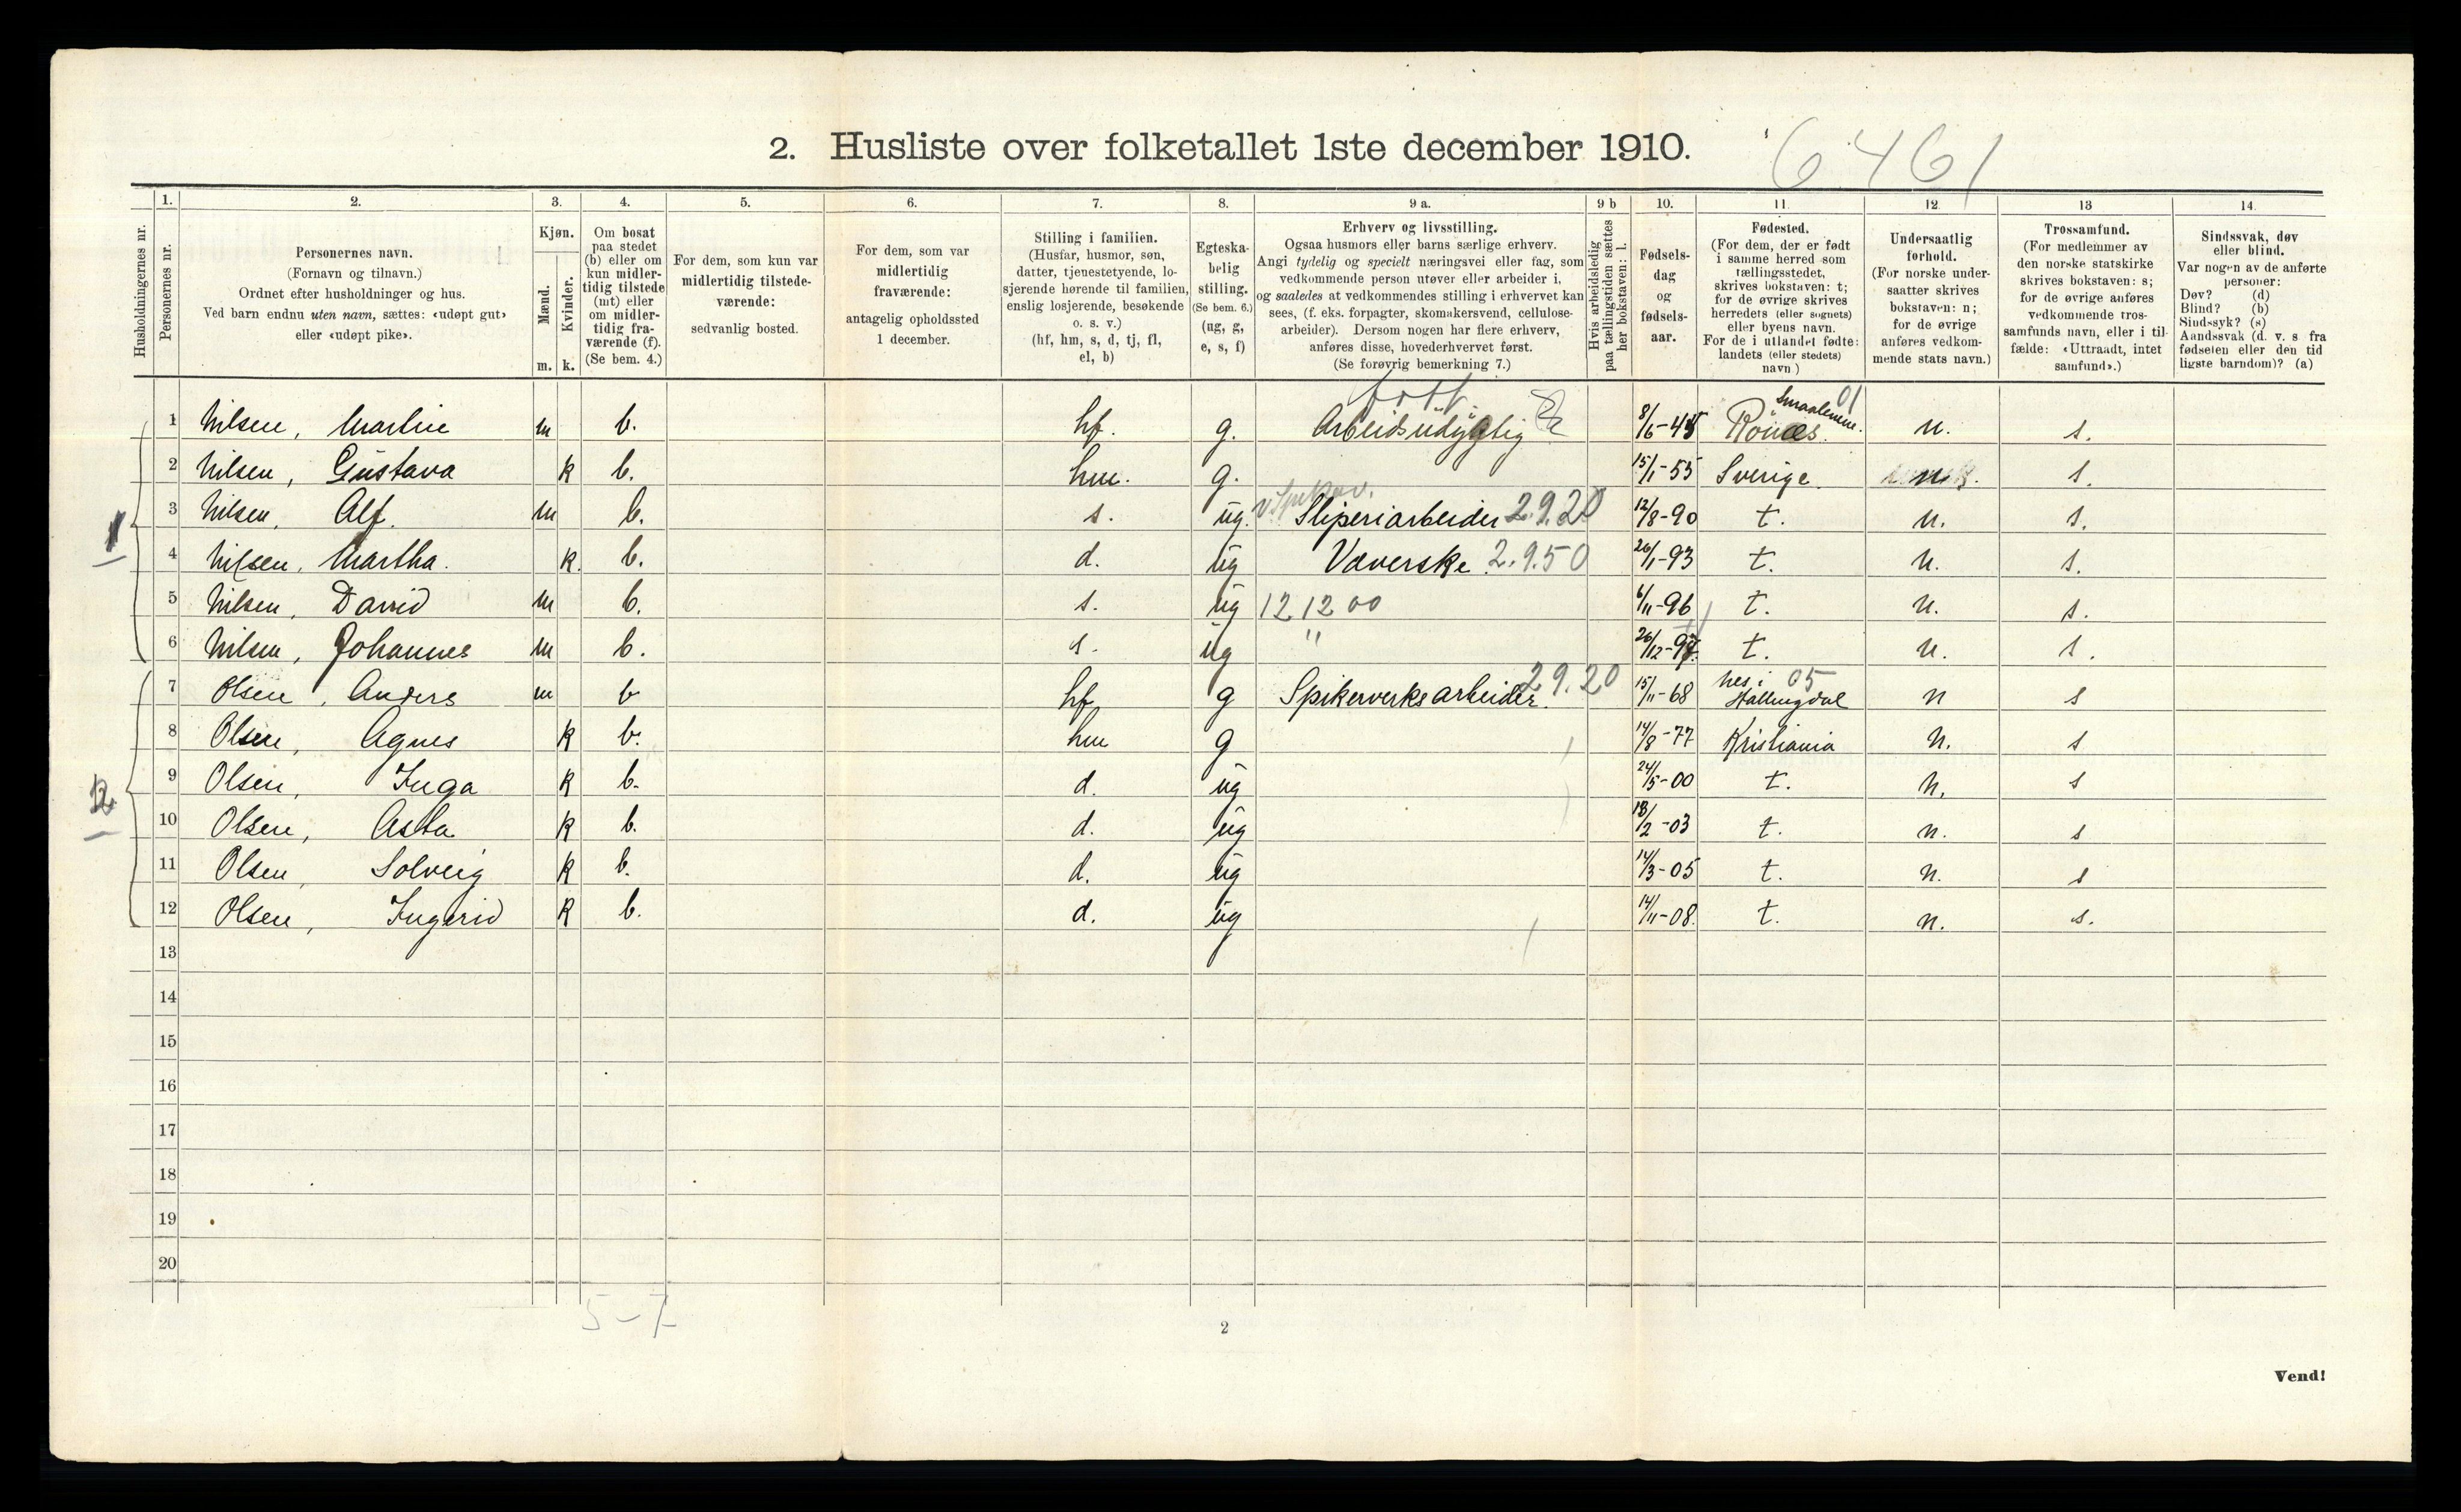 2. Husliste over folketallet 1ste december 1910.
6461
Husholdningernes nr.
1.
Personernes nr.
2.
Personernes navn.
(Fornavn og tilnavn.)
Ordnet efter husholdninger og hus.
Ved barn endnu uten navn, sættes: «udøpt gut»
eller «udøpt pike».
3.
Kjøn.
Mænd.
Kvinder.
m. k.
4.
Om bosat
paa stedet
(b) eller om
kun midler-
tidig tilstede
(mt) eller
om midler-
tidig fra-
værende (f).
(Se bem. 4.)
5.
For dem, som kun var
midlertidig tilstede-
værende:
sedvanlig bosted.
6.
For dem, som var
midlertidig
fraværende:
antagelig opholdssted
1 december.
7.
Stilling i familien.
(Husfar, husmor, søn,
datter, tjenestetyende, lo-
sjerende hørende til familien,
enslig losjerende, besøkende
o. s. v.)
(hf, hm, s, d, tj, fl,
el, b)
8.
Egteska-
belig
stilling.
(Se bem. 6.)
(ug, g,
e, s, f)
9 a.
Erhverv og livsstilling.
Ogsaa husmors eller barns særlige erhverv.
Angi tydelig og specielt næringsvei eller fag, som
vedkommende person utøver eller arbeider i,
og saaledes at vedkommendes stilling i erhvervet kan
sees, (f. eks. forpagter, skomakersvend, cellulose-
arbeider). Dersom nogen har flere erhverv,
anføres disse, hovederhvervet først.
(Se forøvrig bemerkning 7.)
9 b
Hvis arbeidsledig
paa tællingstiden sættes
her bokstaven: l.
10.
Fødsels-
dag
og
fødsels-
aar.
11.
Fødested.
(For dem, der er født
i samme herred som
tællingsstedet,
skrives bokstaven: t;
for de øvrige skrives
herredets (eller sognets)
eller byens navn.
For de i utlandet fødte:
landets (eller stedets)
navn.)
12.
Undersaatlig
forhold.
(For norske under-
saatter skrives
bokstaven: n;
for de øvrige
anføres vedkom-
mende stats navn.)
13
Trossamfund.
(For medlemmer av
den norske statskirke
skrives bokstaven: s;
for de øvrige anføres
vedkommende tros-
samfunds navn, eller i til-
fælde: «Uttraadt, intet
samfund».)
14.
Sindssvak, døv
eller blind.
Var nogen av de anførte
personer:
Døv? (d)
Blind? (b)
Sindssyk? (s)
Aandssvak (d. v. s. fra
fødselen eller den tid-
ligste barndom)? (a)
1
1 Nilsen, Martin m b. hf. g. Arbeidsudygtig 8/6-45 Smaalenene. 01 n. s.
2 Nilsen, Gustava k b. hm. g. 15/1-55 Sverige. n s.
3 Nilsen, Alf. m b. s. ug. Sliperiarbeider 2.9.20 12/8-90 t. n. s.
4 Nilsen, Martha. k. b. d. ug Væverske 2.9.50 26/1-93 t. n. s.
5 Nilsen, David m b. s. ug 12 12 00 6/11-96 t. n. s.
6 Nilsen, Johannes m b. s. ug " 26/12-97 t. n. s.
2
7 Olsen, Anders m b hf g Spikerverksarbeider. 29.20 15/11-68 Nes i Hallingdal 05 n s
8 Olsen, Agnes k b. hm g 14/8-77 Kristiania n. s
9 Olsen, Inga k b. d. ug 24/5-00 t. n. s
10 Olsen, Asta k b. d. ug 18/2-03 t. n. s
11 Olsen, Solveig k b. d. ug 14/3-05 t. n. s
12 Olsen, Ingerid k b. d. ug 14/11-08. t. n. s.
13
14
15
16
17
18
19
20
5-7
2
Vend!